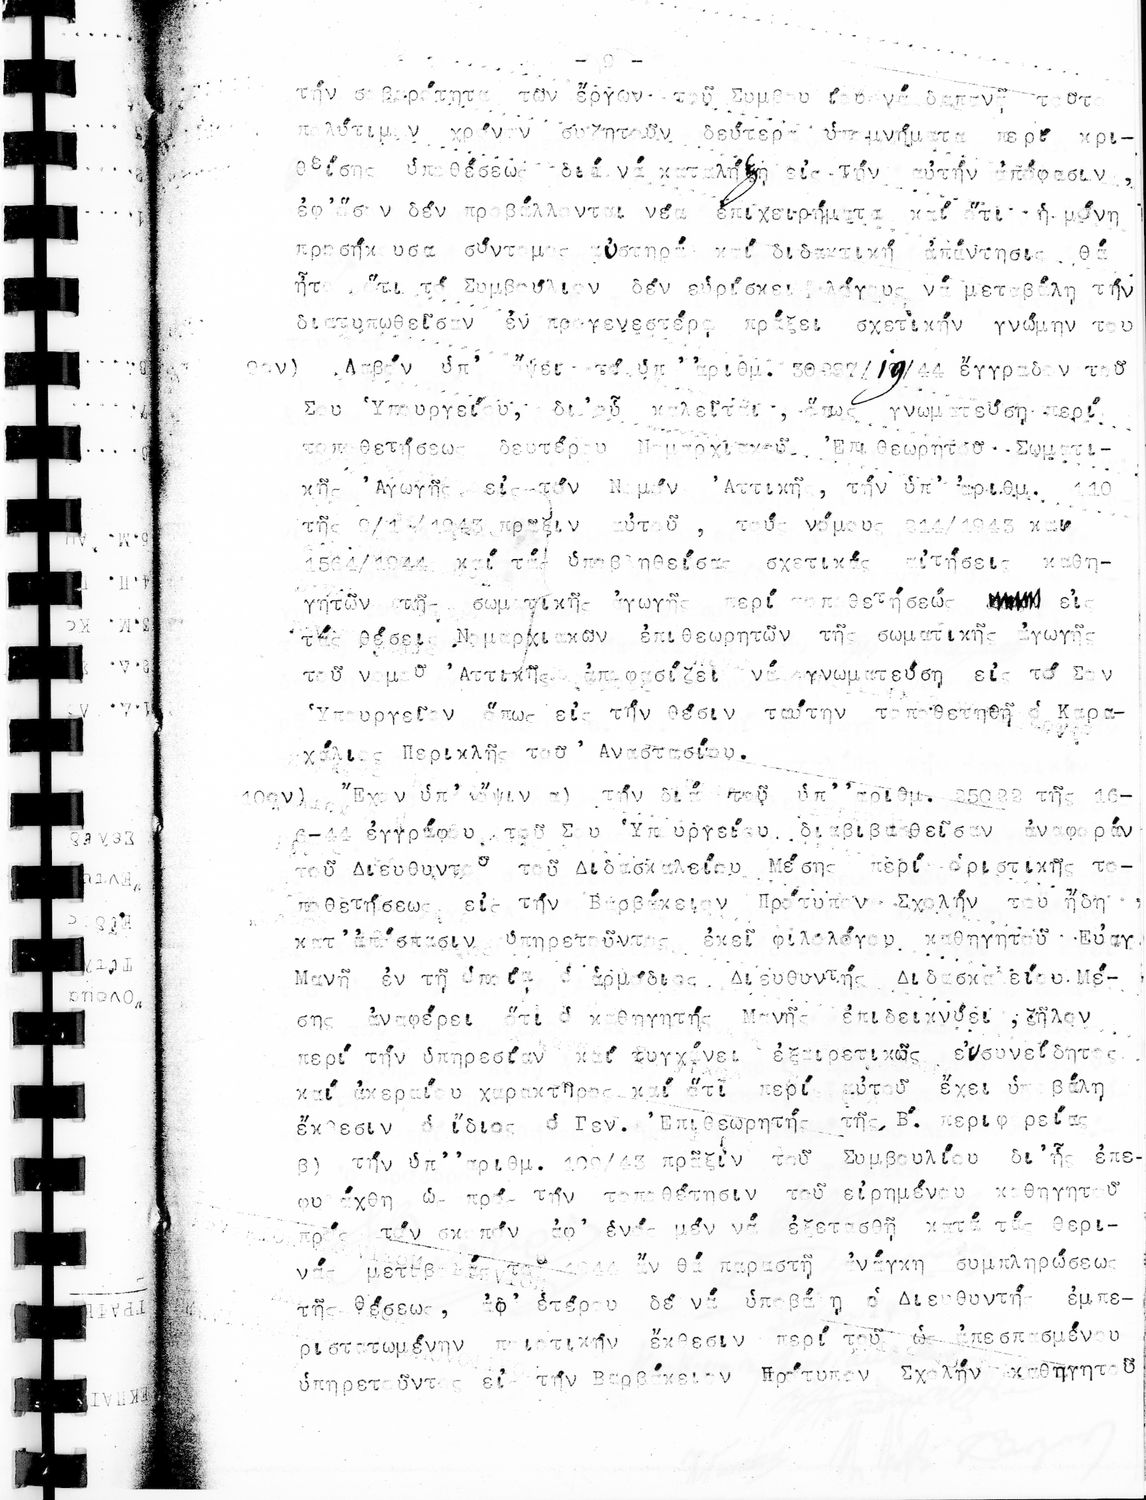 - 9 -
τήν σοβαρότητα τῶν ἔργων τοῦ Συμβουλίου νά δαπανῇ τοῦτο
πολύτιμον χρόνον συζητοῦν δεύτερα ὑπομνήματα περί κρι-
θείσης ὑποθέσεως διά νά καταλήξῃ εἰς τήν αὐτήν ἀπόφασιν,
ἐφ'ὅσον δέν προβάλλονται νέα ἐπιχειρήματα καί ὅτι ἡ μόνη
προσήκουσα σύντομος αὐστηρά καί διδακτική ἀπάντησις θά
ἦτο ὅτι τό Συμβούλιον δέν εὑρίσκει λόγους νά μεταβάλη τήν
διατυπωθεῖσαν ἐν προγενεστέρᾳ πράξει σχετικήν γνώμην του
9ον) Λαβόν ὑπ' ὄψει τό ὑπ''ἀριθμ. /19/44 ἔγγραφον τοῦ
Σου Ὑπουργείου, δι'οὗ καλεῖται, ὅπως γνωματεύση περί
τοποθετήσεως δευτέρου Νομαρχιακοῦ Ἐπιθεωρητοῦ Σωματι-
κῆς Ἀγωγῆς εἰς τόν Νομόν Ἀττικῆς, τήν ὑπ' ἀριθμ. 110
τῆς πρᾶξιν αὐτοῦ, τούς νόμους /1943 καί
1564/1944 καί τάς ὑποβληθείσας σχετικάς αἰτήσεις καθη-
γητῶν τῆς σωματικῆς ἀγωγῆς περί τοποθετήσεώς εἰς
τάς θέσεις Νομαρχιακῶν ἐπιθεωρητῶν τῆς σωματικῆς ἀγωγῆς
τοῦ νομοῦ Ἀττικῆς ἀποφασίζει νά γνωματεύση εἰς τό Σον
Ὑπουργεῖον ὅπως εἰς τήν θέσιν ταύτην τοποθετηθῇ ὁ Καρα-
χάλιος Περικλῆς τοῦ Ἀναστασίου.
10ον) Ἔχον ὑπ' ὄψιν α) τήν διά τοῦ ὑπ''ἀριθμ. 25022 τῆς 16-
6-44 ἐγγράφου τοῦ Σου Ὑπουργείου διαβιβασθεῖσαν ἀναφοράν
τοῦ Διευθυντοῦ τοῦ Διδασκαλείου Μέσης περί ὁριστικῆς το-
ποθετήσεως εἰς τήν Βαρβάκειον Πρότυπον Σχολήν τοῦ ἤδη,
κατ'ἀπόσπασιν ὑπηρετοῦντος ἐκεῖ φιλολόγου καθηγητοῦ Εὐαγ.
Μανῆ ἐν τῇ ὁποίᾳ ὁ ἁρμόδιος Διευθυντής Διδασκαλείου Μέ-
σης ἀναφέρει ὅτι ὁ καθηγητής Μανῆς ἐπιδεικνύει ζῆλον
περί τήν ὑπηρεσίαν καί τυγχάνει ἐξαιρετικῶς εὐσυνείδητος
καί ἀκεραίου χαρακτῆρος καί ὅτι περί αὐτοῦ ἔχει ὑποβάλη
ἔκθεσιν ὁ ἴδιος ὁ Γεν. Ἐπιθεωρητής τῆς Β'. περιφερείας
β) τήν ὑπ''ἀριθμ. 109/43 πρᾶξιν τοῦ Συμβουλίου δι'ἧς ἐπε-
φυλάχθη ὡς πρός τήν τοποθέτησιν τοῦ εἰρημένου καθηγητοῦ
πρός τόν σκοπόν ἀφ' ἑνός μέν νά ἐξετασθῇ κατά τάς θερι-
νάς μεταβολάς τοῦ 1944 ἄν θά παραστῇ ἀνάγκη συμπληρώσεως
τῆς θέσεως, ἀφ' ἑτέρου δέ νά ὑποβάλῃ ὁ Διευθυντής ἐμπε-
ριστατωμένην ποιοτικήν ἔκθεσιν περί τοῦ ὡς ἀπεσπασμένου
ὑπηρετοῦντος εἰς τήν Βαρβάκειον Πρότυπον Σχολήν καθηγητοῦ